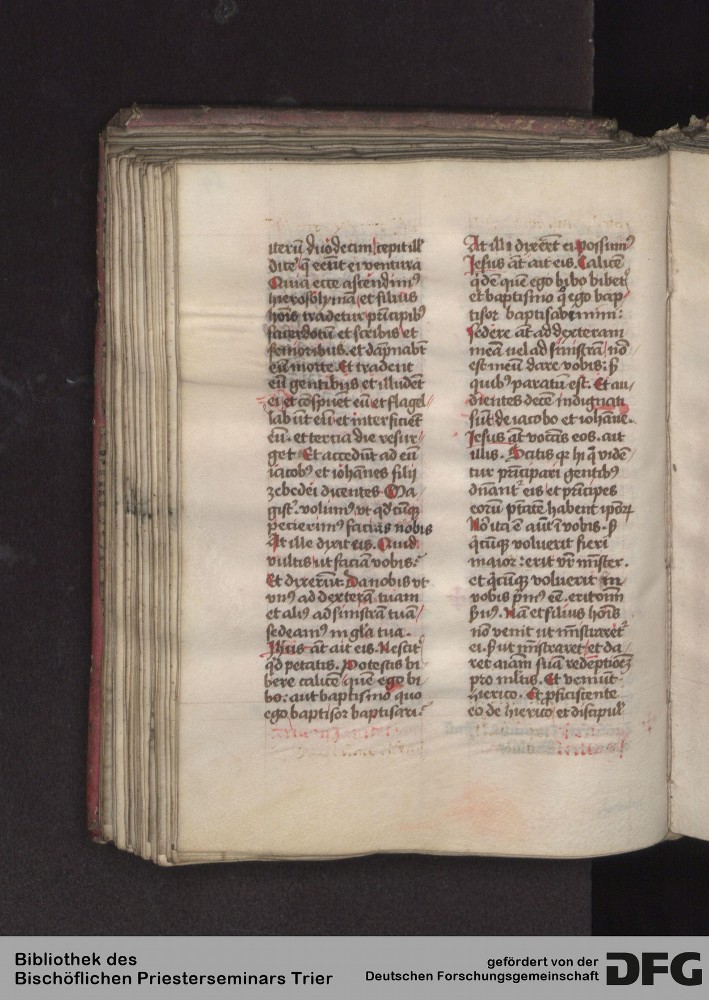 iterū duodecim cepit ill̄
dic̄e q̄ eēnt ei ventura
Quia ecce ascendimꝰ
hierosolymā et filius
hoīs tradetur prīcipibꝰ
sacerdotū et scribis et
senioribus. et dāpnabt̄
eū morte. Et tradent
eū gentibus et illudēt
ei et cōspuēt eū et flagel
labūt eū et interficiēt
eū. et tercia die resur
get Et accedūt ad eū
iacobꝰ et iohānes filii
zebedei dicentes Ma
gist̄. volumꝰ vt qd cūqꝫ
pecierimꝰ facias nobis
At ille dixit eis. Quid
vultis ut faciā vobis.
Et dixerūt. Da nobis vt
vnꝰ ad dexterā tuam
et aliꝰ ad sinistrā tuā
sedeamꝰ in gl̄a tua.
Jhus āt ait eis. Nescit̄
qd petatis. Potestis bi
bere calicē quē ego bi
bo: aut baptismo quo
ego baptisor baptisari.
At illi dixert̄ ei possumꝰ
Jesus āt ait eis. Calicē
q̄dē quē ego bibo bibet̄
et baptismo q̄ ego bap
tisor baptisabemini:
sedere āt ad dexteram
meā uel ad sinistrā nō
est meū dare vobis: sꝫ
quibꝰ paratū est. Et au
dientes decē indignati
sūt de iacobo et iohāne.
Jesus āt vocās eos. ait
illis. Scitis qꝫ hi q̄ vidē
tur prīcipari gentibꝰ
dn̄ant̄ eis et prīcipes
eorū ptātē habent ipōꝝ
Nō ita ē aūt ī vobis. sꝫ
q̄cūqꝫ voluerit fieri
maior: erit vr̄ mīster.
et q̄cūqꝫ voluerit in
vobis pͥmꝰ eē. erit oīm
ẜuꝰ. Nā et filius hoīs
nō venit ut mīstraret̄
ei. sꝫ ut mīstraret et da
ret aīam suā redēptiōeꝫ
pro mltis. Et veniūt
hierico. Et ꝓficiscente
eo de hierico et discipul̄
Bibliothek des
Bischöflichen Priesterseminars Trier
gefördert von der
Deutschen Forschungsgemeinschaft
DFG